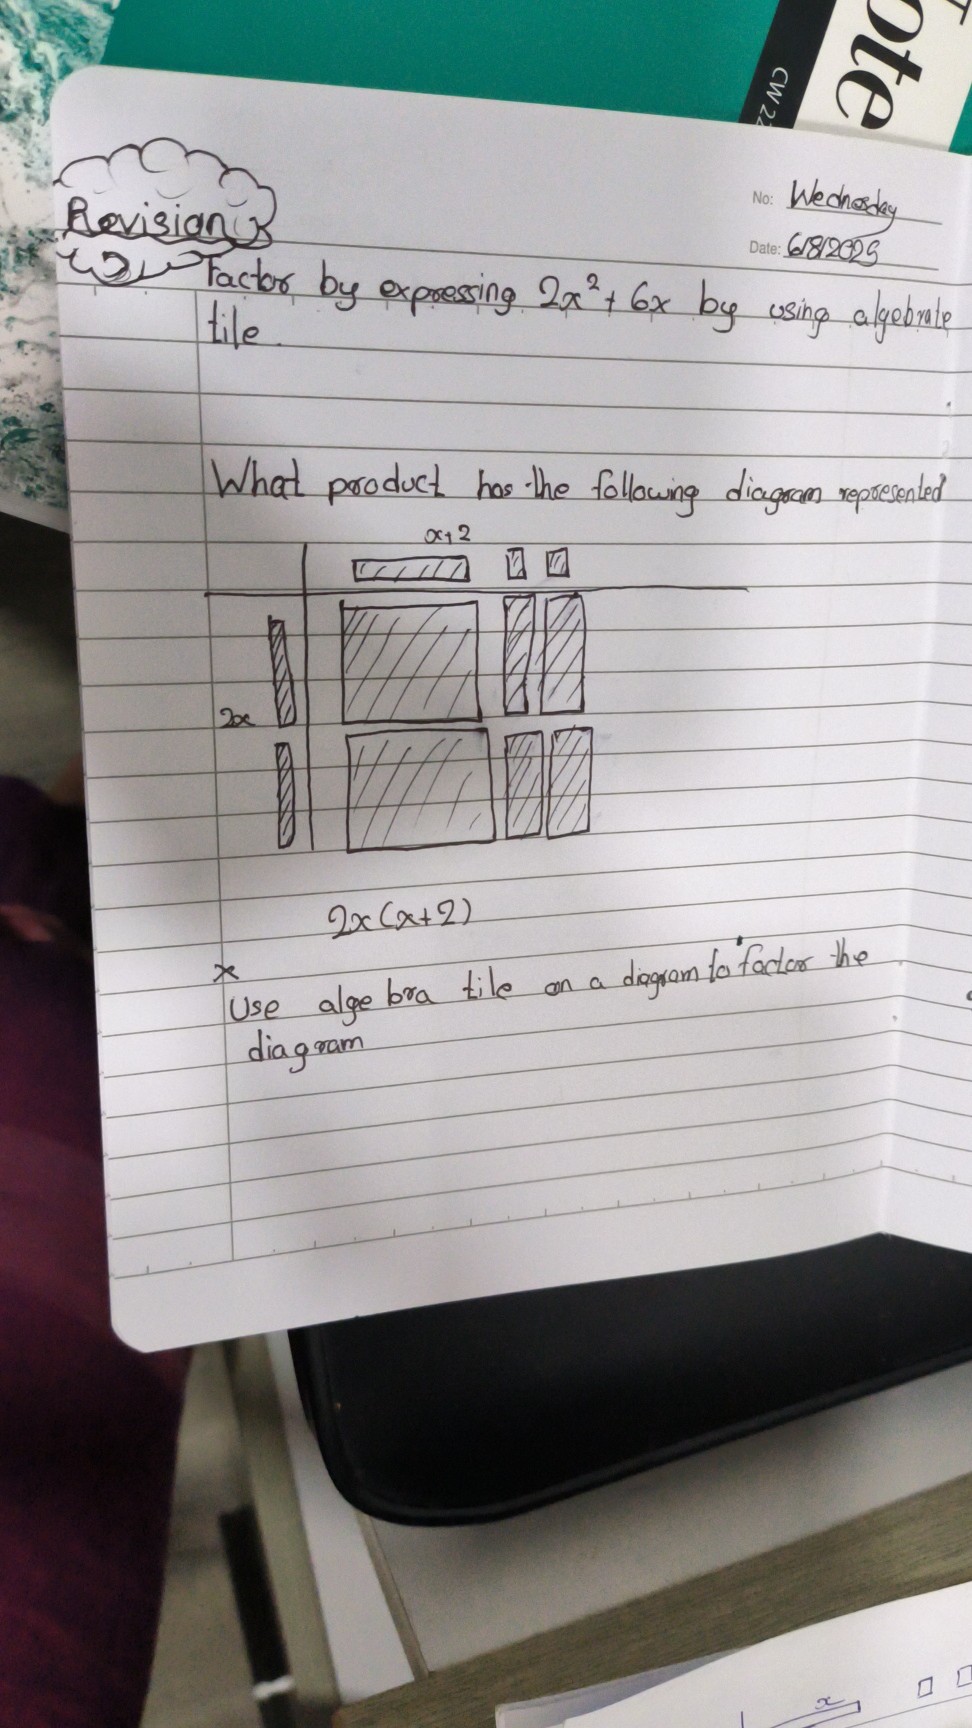 ote
CW 22
Revision
No: Wednesday
Date: 6/8/2025
Factor by expressing 2x² + 6x by using algebrate
tile.
What product has the following diagram represented
x+2
2x
2x(x+2)
x
Use algebra tile on a diagram to factor the
diagram
x